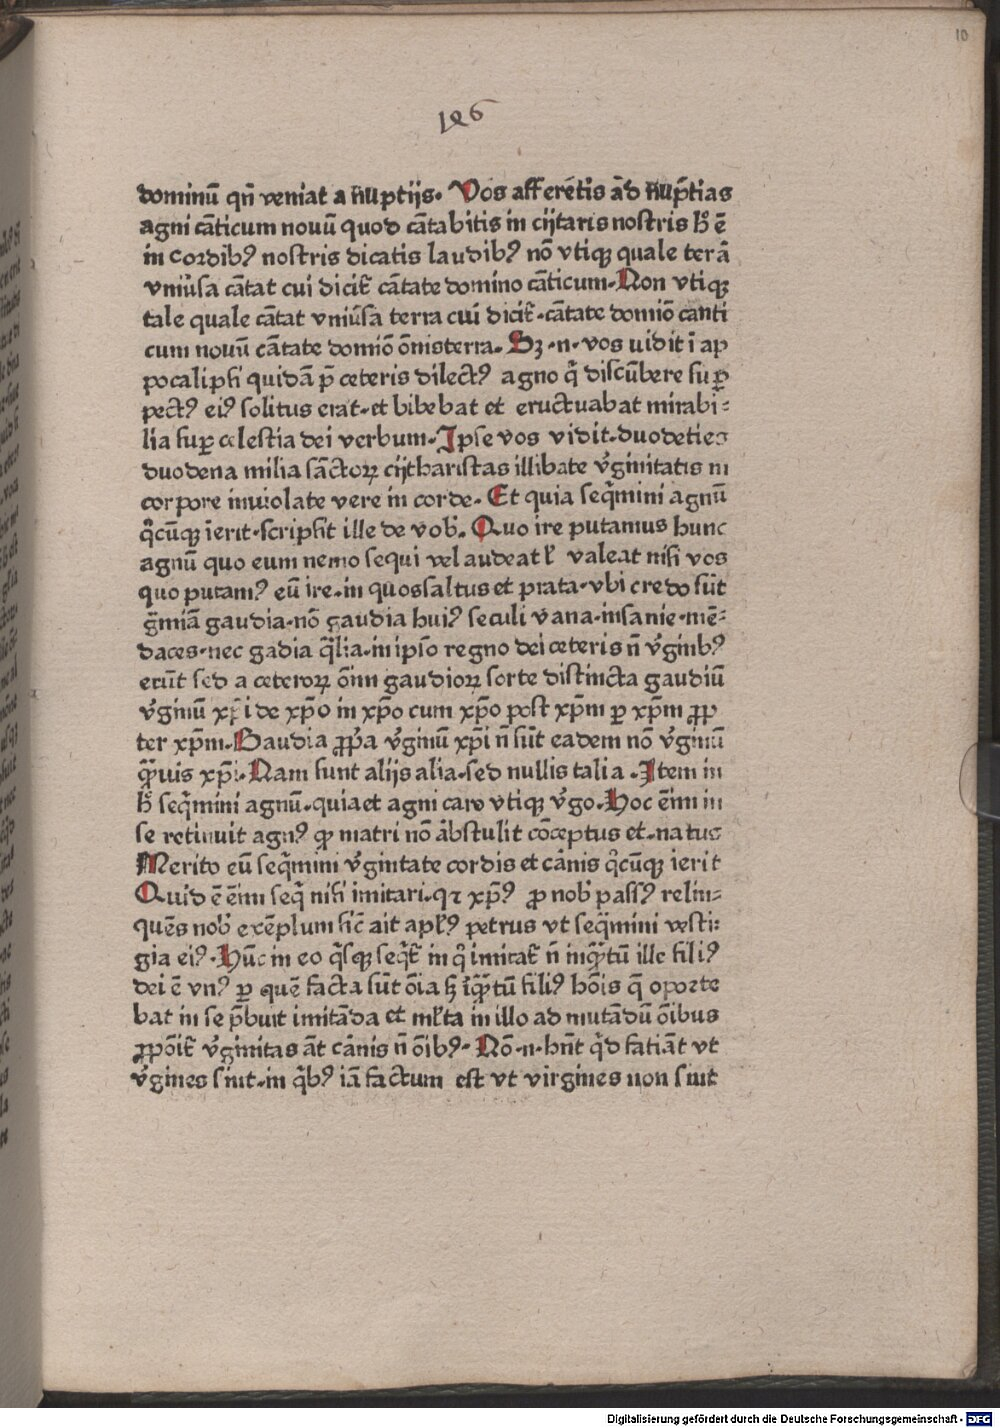 10
126
dominū qn̄ veniat a n̄uptijs. Vos afferētis ād n̄up̄tias
agni cāticum nouū quod cātabitis in cijtaris nostris h̄ ē
in cordibꝰ nostris dicatis laudibꝰ nō vtiqꝫ quale terā
vniūsa cātat cui dicit̄ cātate domino cāticum. Non vtiqꝫ
tale quale cātat vniūsa terra cui dicit̄. cātate domiō canti
cum nouū cātate domiō ōnisterra. Sꝫ .n. vos uidit ī ap
pocalipsi quidā p̄ ceteris dilectꝰ agno q̄ discūbere suꝑ
pectꝰ eiꝰ solitus erat. et bibebat et eructuabat mirabi⸗
lia suꝑ celestia dei verbum. Ipse vos vidit. duodeties
duodena milia sāctoꝝ cijtharistas illibate v̄ginitatis in
corpore inuiolate vere in corde. Et quia seq̄mini agnū
q̄cūqꝫ ierit. scripsit ille de vob̄. Quo ire putamus hunc
agnū quo eum nemo sequi vel audeat l̄ valeat nisi vos
quo putamꝰ eū ire. in quossaltus et prata. vbi credo sūt
ḡmiā gaudia. nō gaudia huiꝰ seculi vana. insanie. mē⸗
daces. nec gadia q̄lia. in ipso regno dei ceteris n̄ v̄ginbꝰ
erūt sed a ceteroꝝ ōnn gaudioꝝ sorte distincta gaudiū
v̄ginū xp̄i de xp̄o in xp̄o cum xp̄o post xp̄m ꝑ xp̄m ꝓp
ter xp̄m. Gaudia ꝓp̄a v̄ginū xp̄i n̄ sūt eadem nō v̄ginū
q̄uis xp̄i. Nam sunt alijs alia. sed nullis talia. Item in
h̄ seq̄mini agnū. quia et agni caro vtiqꝫ v̄go. Hoc ēim in
se retinuit agnꝰ qꝫ matri nō ābstulit cōceptus et. natus
Merito eū seq̄mini v̄gintate cordis et cānis q̄cūqꝫ ierit
Quid ē ēim seq̄ nisi imitari. qꝛ xp̄ꝰ ꝓ nob̄ passꝰ relin⸗
quēs nob̄ exēplum sic̄ ait apl̄ꝰ petrus vt seq̄mini vesti⸗
gia eiꝰ. Hūc in eo q̄sqꝫ seq̄t̄ in q̄ imitat̄ n̄ inq̄tū ille filiꝰ
dei ē vnꝰ ꝑ quē facta sūt ōia sꝫ īq̄tū filiꝰ hōis q̄ oporte
bat in se p̄buit imitāda et ml̄ta in illo ad mutādū ōibus
ꝓpōit̄ v̄ginitas āt cānis n̄ ōibꝰ. Nō .n. hn̄t q̄d fatiāt vt
v̄gines sint. in q̄bꝰ iā factum est vt virgines non sint
Digitalisierung gefördert durch die Deutsche Forschungsgemeinschaft - DFG